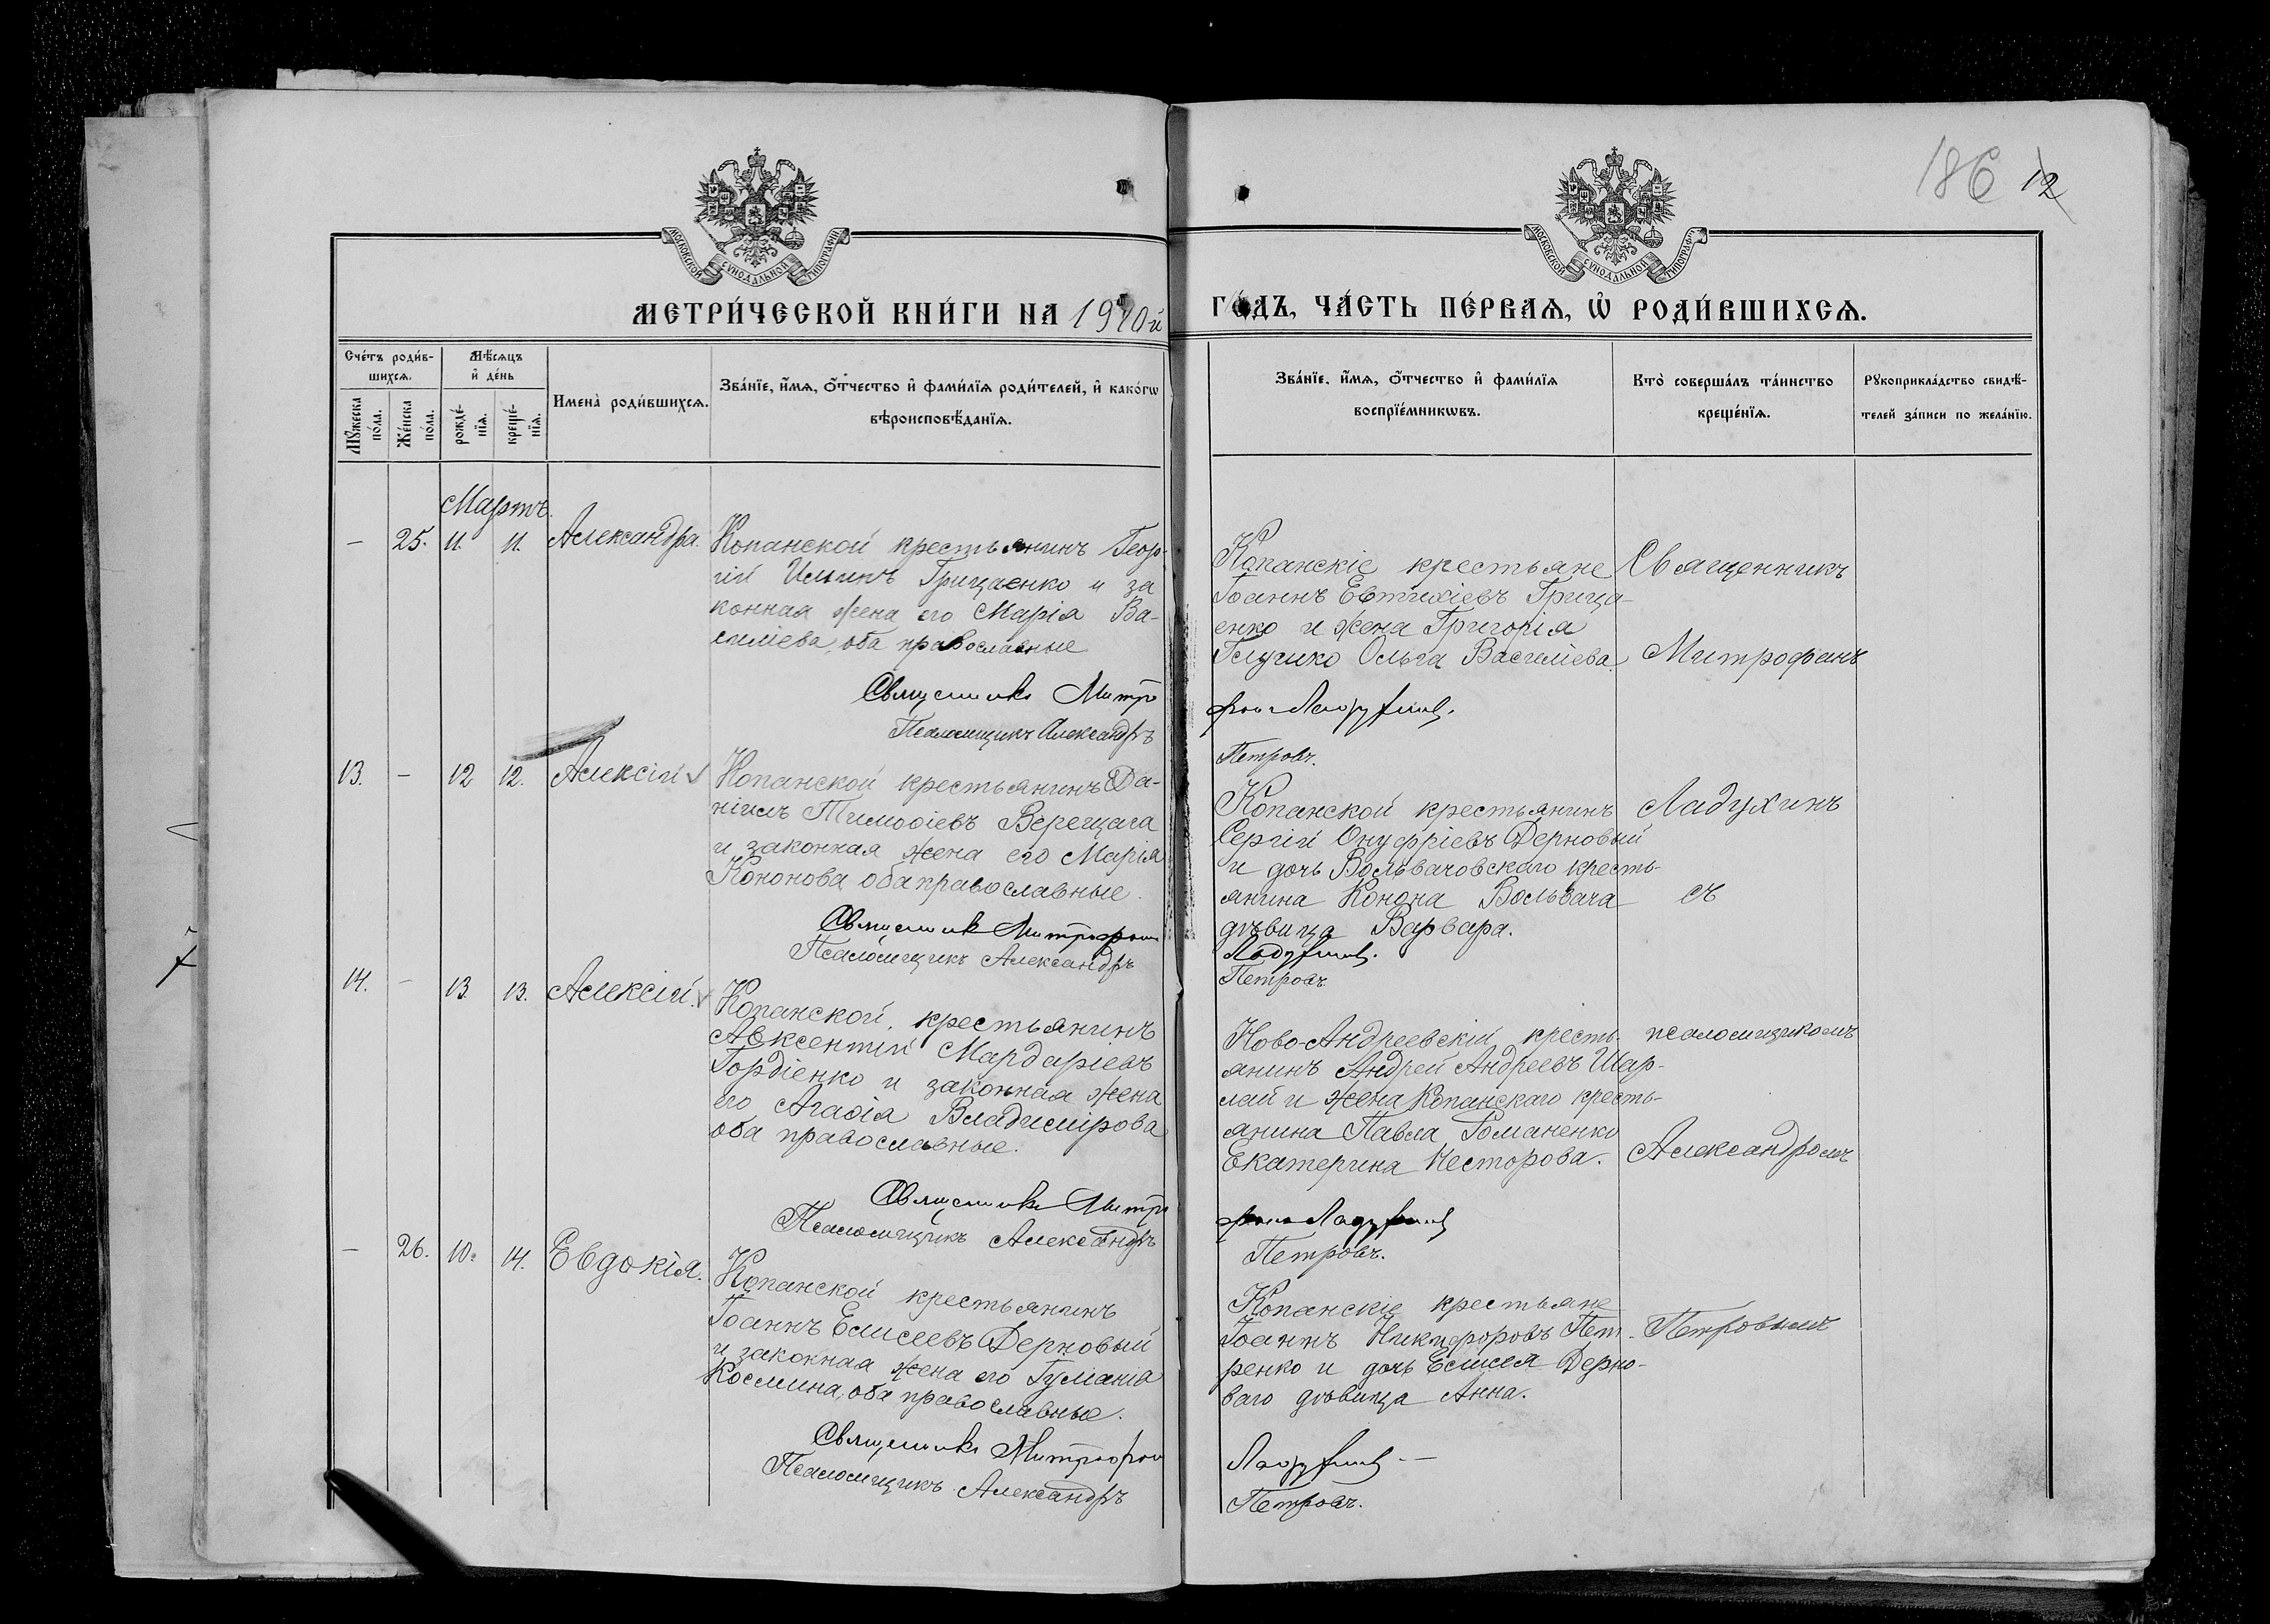 186 12
МОСКОВСКОЙ СѴНОДАЛЬНОЙ ТИПОГРАФІИ
МОСКОВСКОЙ СѴНОДАЛЬНОЙ ТИПОГРАФІИ
МЕТРИ́ЧЕСКОЙ КНИ́ГИ НА 1910й
ГО́ДЪ, ЧА́СТЬ ПЕ́РВАѦ, Ѡ҆ РОДИ́ВШИХСѦ.
Сче́тъ роди́в-
шихсѧ.
Мꙋ́жеска по́ла.
Же́нска по́ла.
Мѣ́сѧцъ
и҆ де́нь
рожде́-
нїѧ.
креще́-
нїѧ.
Имена̀ роди́вшихсѧ.
Зва́нїе, и҆́мѧ, ѻ҆́тчество и҆ фами́лїѧ роди́телей, и҆ како́гѡ
вѣроисповѣ́данїѧ.
Зва́нїе, и҆́мѧ, ѻ҆́тчество и҆ фами́лїѧ
воспрїе́мникѡвъ.
Кто̀ соверша́лъ та́инство
креще́нїѧ.
Рꙋкоприкла́дство свидѣ́-
телей за́писи по жела́нїю.
Мартъ.
— 25. 11. 11. Александра.
Копанской крестьянинъ Геор-
гій Ильинъ Грицаенко и за
конная жена его Марія Ва-
силіева, оба православные
Священникъ Митро
Псаломщикъ Александръ
Копанскіе крестьяне
Іоаннъ Евтихіевъ Грица-
енко и жена Григорія
Ольга Василіева.
фанъ Ладухинъ.
Петровъ.
Священникъ
Митрофанъ
13. — 12 12. Алексій
Копанской крестьянинъ Да-
ніилъ Тимоѳіевъ Верещага
и законная жена его Марія
Кононова, оба православные.
Священникъ Митрофанъ
Псаломщикъ Александръ
Копанской крестьянинъ
Сергій Онуфріевъ Дерновый
и дочь Вольвачовскаго кресть-
янина Конона Вольвача
дѣвица Варвара.
Ладухинъ.
Петровъ.
Ладухинъ
съ
14. — 13. 13. Алексій.
Копанской крестьянинъ
Авксентій Мардаріевъ
Гордіенко и законная жена
его Агаѳія Владимірова
оба православные.
Священникъ Митро
Псаломщикъ Александръ
Ново-Андреевскій кресть-
янинъ Андрей Андреевъ Шар-
лай и жена Копанскаго кресть-
янина Павла Романенко
Екатерина Несторова.
фанъ Ладухинъ
Петровъ.
псаломщикомъ
Александромъ
— 26. 10. 14. Евдокія.
Копанской крестьянинъ
Іоаннъ Елисеевъ Дерновый
и законная жена его Іуліанія
Космина, оба православные.
Священникъ Митрофан
Псаломщикъ Александръ
Копанскіе крестьяне
Іоаннъ Никифоровъ Пет-
ренко и дочь Елисея Дерно-
ваго дѣвица Анна.
Ладухинъ
Петровъ.
Петровымъ